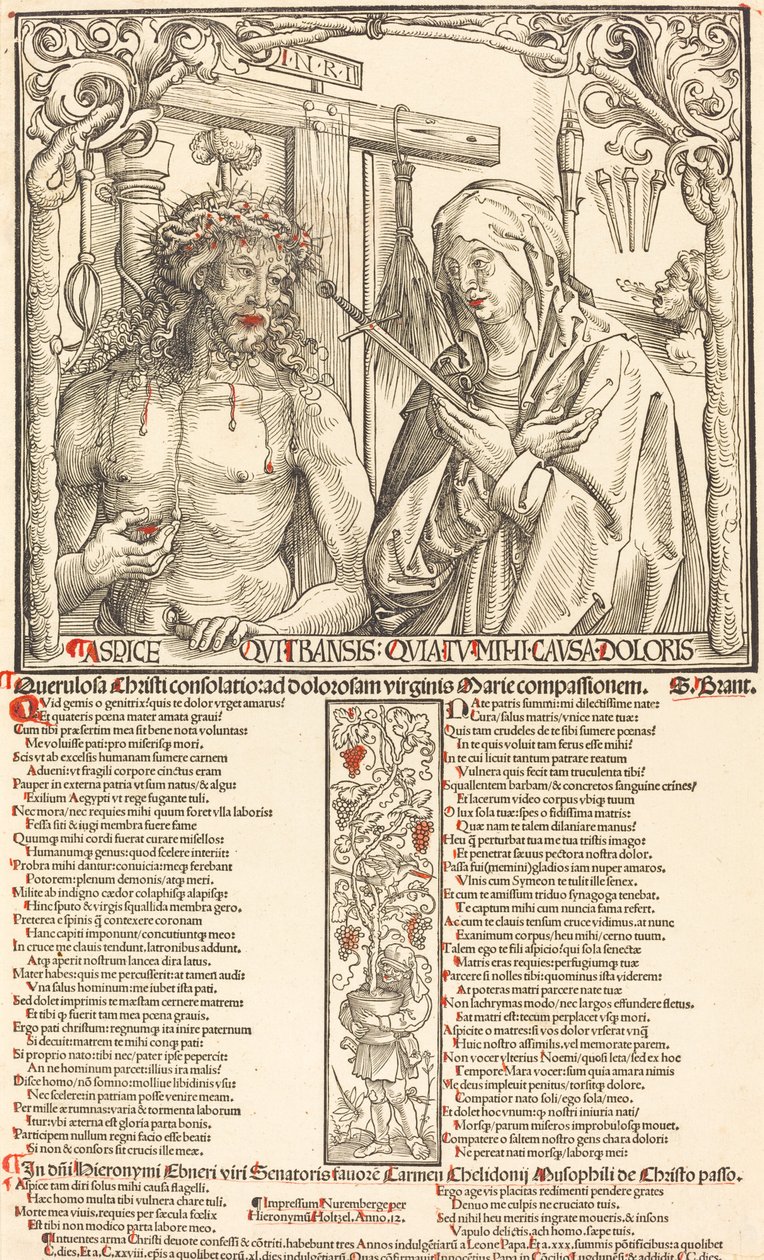 I·N·R·I
ASPICE QVI TRANSIS: QVIA TV MIHI CAVSA DOLORIS
Querulosa Christi consolatio: ad dolorosam virginis Marie compassionem. S. Brant.
QVid gemis o genitrix? quis te dolor vrget amarus?
Et quateris pœna mater amata graui?
Cum tibi præsertim mea sit bene nota voluntas:
Me voluisse pati: pro miserisq̃ mori.
Scis vt ab excelsis humanam sumere carnem
Adueni: vt fragili corpore cinctus eram
Pauper in externa patria vt sum natus/ & algu:
Exilium Aegypti vt rege fugante tuli.
Nec mora/ nec requies mihi quum foret vlla laboris:
Fessa siti & iugi membra fuere fame
Quumq̃ mihi cordi fuerat curare misellos:
Humanumq̃ genus: quod scelere interiit:
Probra mihi dantur: conuicia: meq̃ ferebant
Potorem: plenum demonis/ atq̃ meri.
Milite ab indigno cædor colaphisq̃ alapisq̃:
Hinc sputo & virgis squallida membra gero.
Preterea e spinis q̃ contexere coronam
Hanc capiti imponunt/ concutiuntq̃ meo:
In cruce me clauis tendunt. latronibus addunt.
Atq̃ aperit nostrum lancea dira latus.
Mater habes: quis me percusserit: at tamen audi:
Vna salus hominum: me iubet ista pati.
Sed dolet imprimis te mæstam cernere matrem:
Et tibi q̃ fuerit tam mea pœna grauis.
Ergo pati christum: regnumq̃ ita inire paternum
Si decuit: matrem te mihi conq̃ pati:
Si proprio nato: tibi nec/ pater ipse pepercit:
An ne hominum parcet: illius ira malis?
Disce homo/ nō somno: molliue libidinis vsu:
Nec scelere: in patriam posse venire meam.
Per mille ærumnas: varia & tormenta laborum
Itur: vbi æterna est gloria parta bonis.
Participem nullum regni facio esse beati:
Si non & consors sit crucis ille meæ.
NAte patris summi: mi dilectissime nate:
Cura/ salus matris/ vnice nate tuæ:
Quis tam crudeles de te sibi sumere pœnas?
In te quis voluit tam ferus esse mihi?
In te cui licuit tantum patrare reatum
Vulnera quis fecit tam truculenta tibi?
Squallentem barbam/ & concretos sanguine crines/
Et lacerum video corpus vbiq̃ tuum
O lux sola tuæ: spes o fidissima matris:
Quæ nam te talem dilaniare manus?
Heu q̃ perturbat tua me tua tristis imago:
Et penetrat sæuus pectora nostra dolor.
Passa fui (memini) gladios iam nuper amaros.
Vlnis cum Symeon te tulit ille senex.
Et cum te amissum triduo synagoga tenebat.
Te captum mihi cum nuncia fama refert.
Ac cum te clauis tensum cruce vidimus. at nunc
Exanimum corpus/ heu mihi/ cerno tuum.
Talem ego te fili aspicio? qui sola senectæ
Matris eras requies: perfugiumq̃ tuæ
Parcere si nolles tibi: quominus ista viderem:
At poteras matri parcere nate tuæ
Non lachrymas modo/ nec largos effundere fletus.
Sat matri est: tecum perplacet vsq̃ mori.
Aspicite o matres: si vos dolor vrserat vnq̃
Huic nostro assimilis. vel memorate parem.
Non vocer vlterius Noemi/ quosi leta/ sed ex hoc
Tempore Mara vocer: sum quia amara nimis
Me deus impleuit penitus/ torsitq̃ dolore.
Compatior nato soli/ ego sola/ meo.
Et dolet hoc vnum: q̃ nostri iniuria nati/
Morsq̃/ parum miseros improbulosq̃ mouet.
Compatere o saltem nostro gens chara dolori:
Ne pereat nati morsq̃/ laborq̃ mei:
In dñi Hieronymi Ebneri viri Senatoris fauorē Carmen Chelidonij Musophili de Christo passo.
Aspice tam diri solus mihi causa flagelli.
Hæc homo multa tibi vulnera chare tuli.
Morte mea viuis. requies per sæcula fœlix
Est tibi non modico parta labore meo.
Impressum Nurembergę per
Hieronymū Holtzel. Anno. 12.
Ergo age vis placitas redimenti pendere grates
Denuo me culpis ne cruciato tuis.
Sed nihil heu meritis ingrate moueris. & insons
Vapulo delictis, ach homo. sæpe tuis.
Intuentes arma Christi deuote confessi & cōtriti. habebunt tres Annos indulgētiarū a Leone Papa. Et a .xxx. summis pōtificibus: a quolibet
C. dies. Et a, C. xxviii. epis a quolibet eorū. xl. dies indulgētiarū.